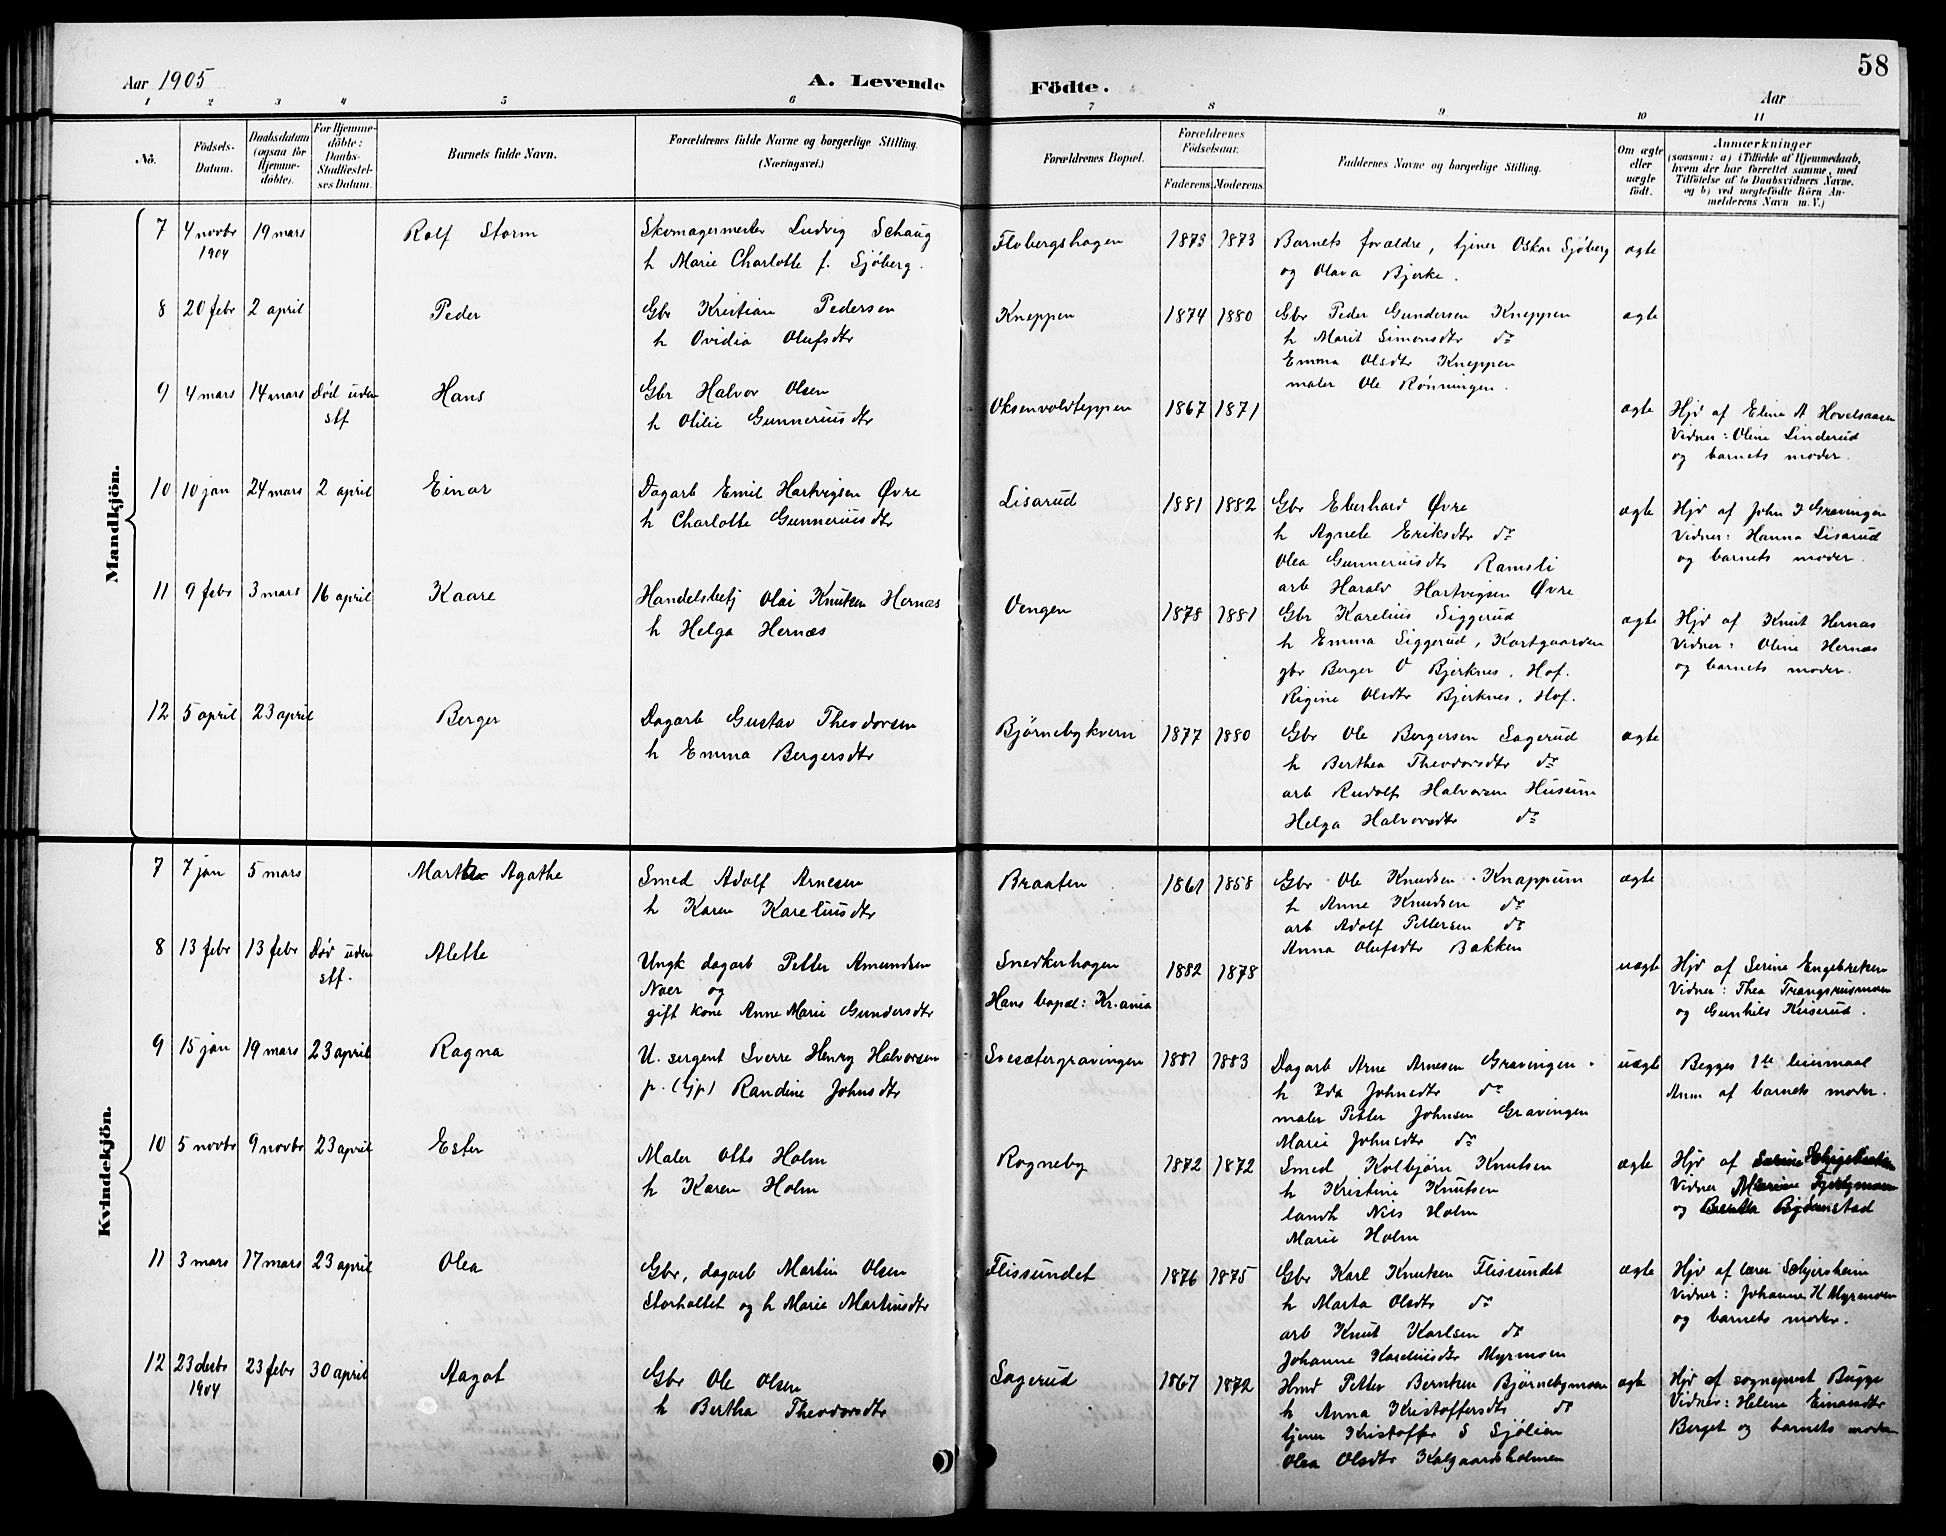 58
Aar 1905
A. Levende Födte.
Aar
1 2 3 4 5 6 7 8 9 10 11
No.
Födsels-Datum.
Daabsdatum (ogsaa for Hjemmedöbte).
For Hjemmedöbte: Daabs-Stadfæstelses Datum.
Barnets fulde Navn.
Forældrenes fulde Navne og borgerlige Stilling. (Næringsvei.)
Forældrenes Bopæl.
Forældrenes Födselsaar.
Faderens Moderens
Faddernes Navne og borgerlige Stilling.
Om ægte eller uægte födt.
Anmærkninger
(saasom: a) i Tilfælde af Hjemmedaab, hvem der har forrettet samme, med Tilföielse af to Daabsvidners Navne, og b) ved uægtefödte Börn Anmelderens Navn m. V.)
Mandkjön.
7 4 novbr 1904 19 mars Rolf Storm
Skomagermester Ludvig Schaug
h Marie Charlotte f. Sjøberg.
Flobergshagen 1873 1873
Barnets forældre, tjener Oskar Sjøberg
og Olava Bjerke.
ægte
8 20 febr 2 april Peder
Gbr Kristian Pedersen
h Ovidia Olufsdtr
Kneppen 1874 1880
Gbr Peder Gundersen Kneppen
h Marit Simensdtr do
Emma Olsdtr Kneppen
maler Ole Rønningen.
ægte
9 4 mars 14 mars Død uden stf Hans
Gbr Halvor Olsen
h Otilie Gunneriusdtr
Oksenvoldteppen 1867 1871
ægte
Hjd af Eline A Hovelsaasen
Vidner: Oline Linderud
og barnets moder.
10 10 jan 24 mars 2 april Einar
Dagarb Emil Hartvigsen Øvre
h Charlotte Gunneriusdtr
Lisarud 1881 1882
Gbr Eberhard Øvre
h Agnete Eriksdtr do
Olea Gunneriusdtr Ramsli
arb Harald Hartvigsen Øvre
ægte
Hjd af John J Gravingen
Vidner: Hanna Lisarud
og barnets moder.
11 9 febr 3 mars 16 april Kaare
Handelsbetj Olai Knutsen Hernæs
h Helga Hernæs
Vengen 1878 1881
Gbr Karelius Siggerud
h Emma Siggerud, Kortgaarden
gbr Berger O Bjerknes, Hof.
Rigine Olsdtr Bjerknes, Hof.
ægte
Hjd af Knut Hernæs
Vidner: Oline Hernæs
og barnets moder.
12 5 april 23 april Berger
Dagarb Gustav Theodorsen
h Emma Bergersdtr
Bjørnebykvern 1877 1880
Gbr Ole Bergersen Sagerud
h Berthea Theodorsdtr do
arb Rudolf Halvorsen Husum
Helga Halvorsdtr do
ægte
Kvindekjön.
7 7 jan 5 mars Martha Agathe
Smed Adolf Arnesen
h Karen Kareliusdtr
Braaten 1861 1858
Gbr Ole Knudsen Knappum
h Anne Knudsen do
arb Adolf Pettersen do
Anna Olufsdtr Bakken
ægte
8 13 febr 13 febr Død uden stf. Alette
Ungk dagarb Petter Amundsen
Naer og
gift kone Anne Marie Gundersdtr
Snedkerhagen 1882 1878
Hans bopæl: Kr.ania
uægte
Hjd af Serine Engebretsen
Vidner: Thea Trangsrusmoen
og Gunhild Kiserud.
9 15 jan 19 mars 23 april Ragna
U. sergent Sverre Henry Halvorsen
p. (Gp) Randine Johnsdtr
Svesætergravingen 1881 1883
Dagarb Arne Arnesen Gravingen
h Ida Johnsdtr do
maler Petter Johnsen Gravingen
Marie Johnsdtr do
uægte
Begges 1ste leiermaal
Anm af barnets moder.
10 5 novbr 9 novbr 23 april Ester
Maler Otto Holm
h Karen Holm
Rogneby 1872 1872
Smed Kolbjørn Knutsen
h Kristine Knutsen
landh Nils Holm
Marie Holm
ægte
Hjd af Serine
Vidner
og
11 3 mars 17 mars 23 april Olea
Gbr, dagarb Martin Olsen
Storholtet og h Marie Martinsdtr
Flissundet 1876 1875
Gbr Karl Knutsen Flissundet
h Marta Olsdtr do
arb Knut Karlsen do
Johanne Kareliusdtr Myrmoen
ægte
Hjd af lærer Sehjersheim
Vidner: Johanne K Myrmoen
og barnets moder.
12 23 decbr 1904 23 febr 30 april Aagot
Gbr Ole Olsen
h Bertha Theodorsdtr
Sagerud 1867 1872
Hmd Petter Berntsen Bjørnebymoen
h Anna Kristoffersdtr do
tjener Kristoffer S Sjølien
Olea Olsdtr Kalgaardsholmen
ægte
Hjd af sogneprest Bugge
Vidner: Helene Einarsdtr
Berget og barnets moder